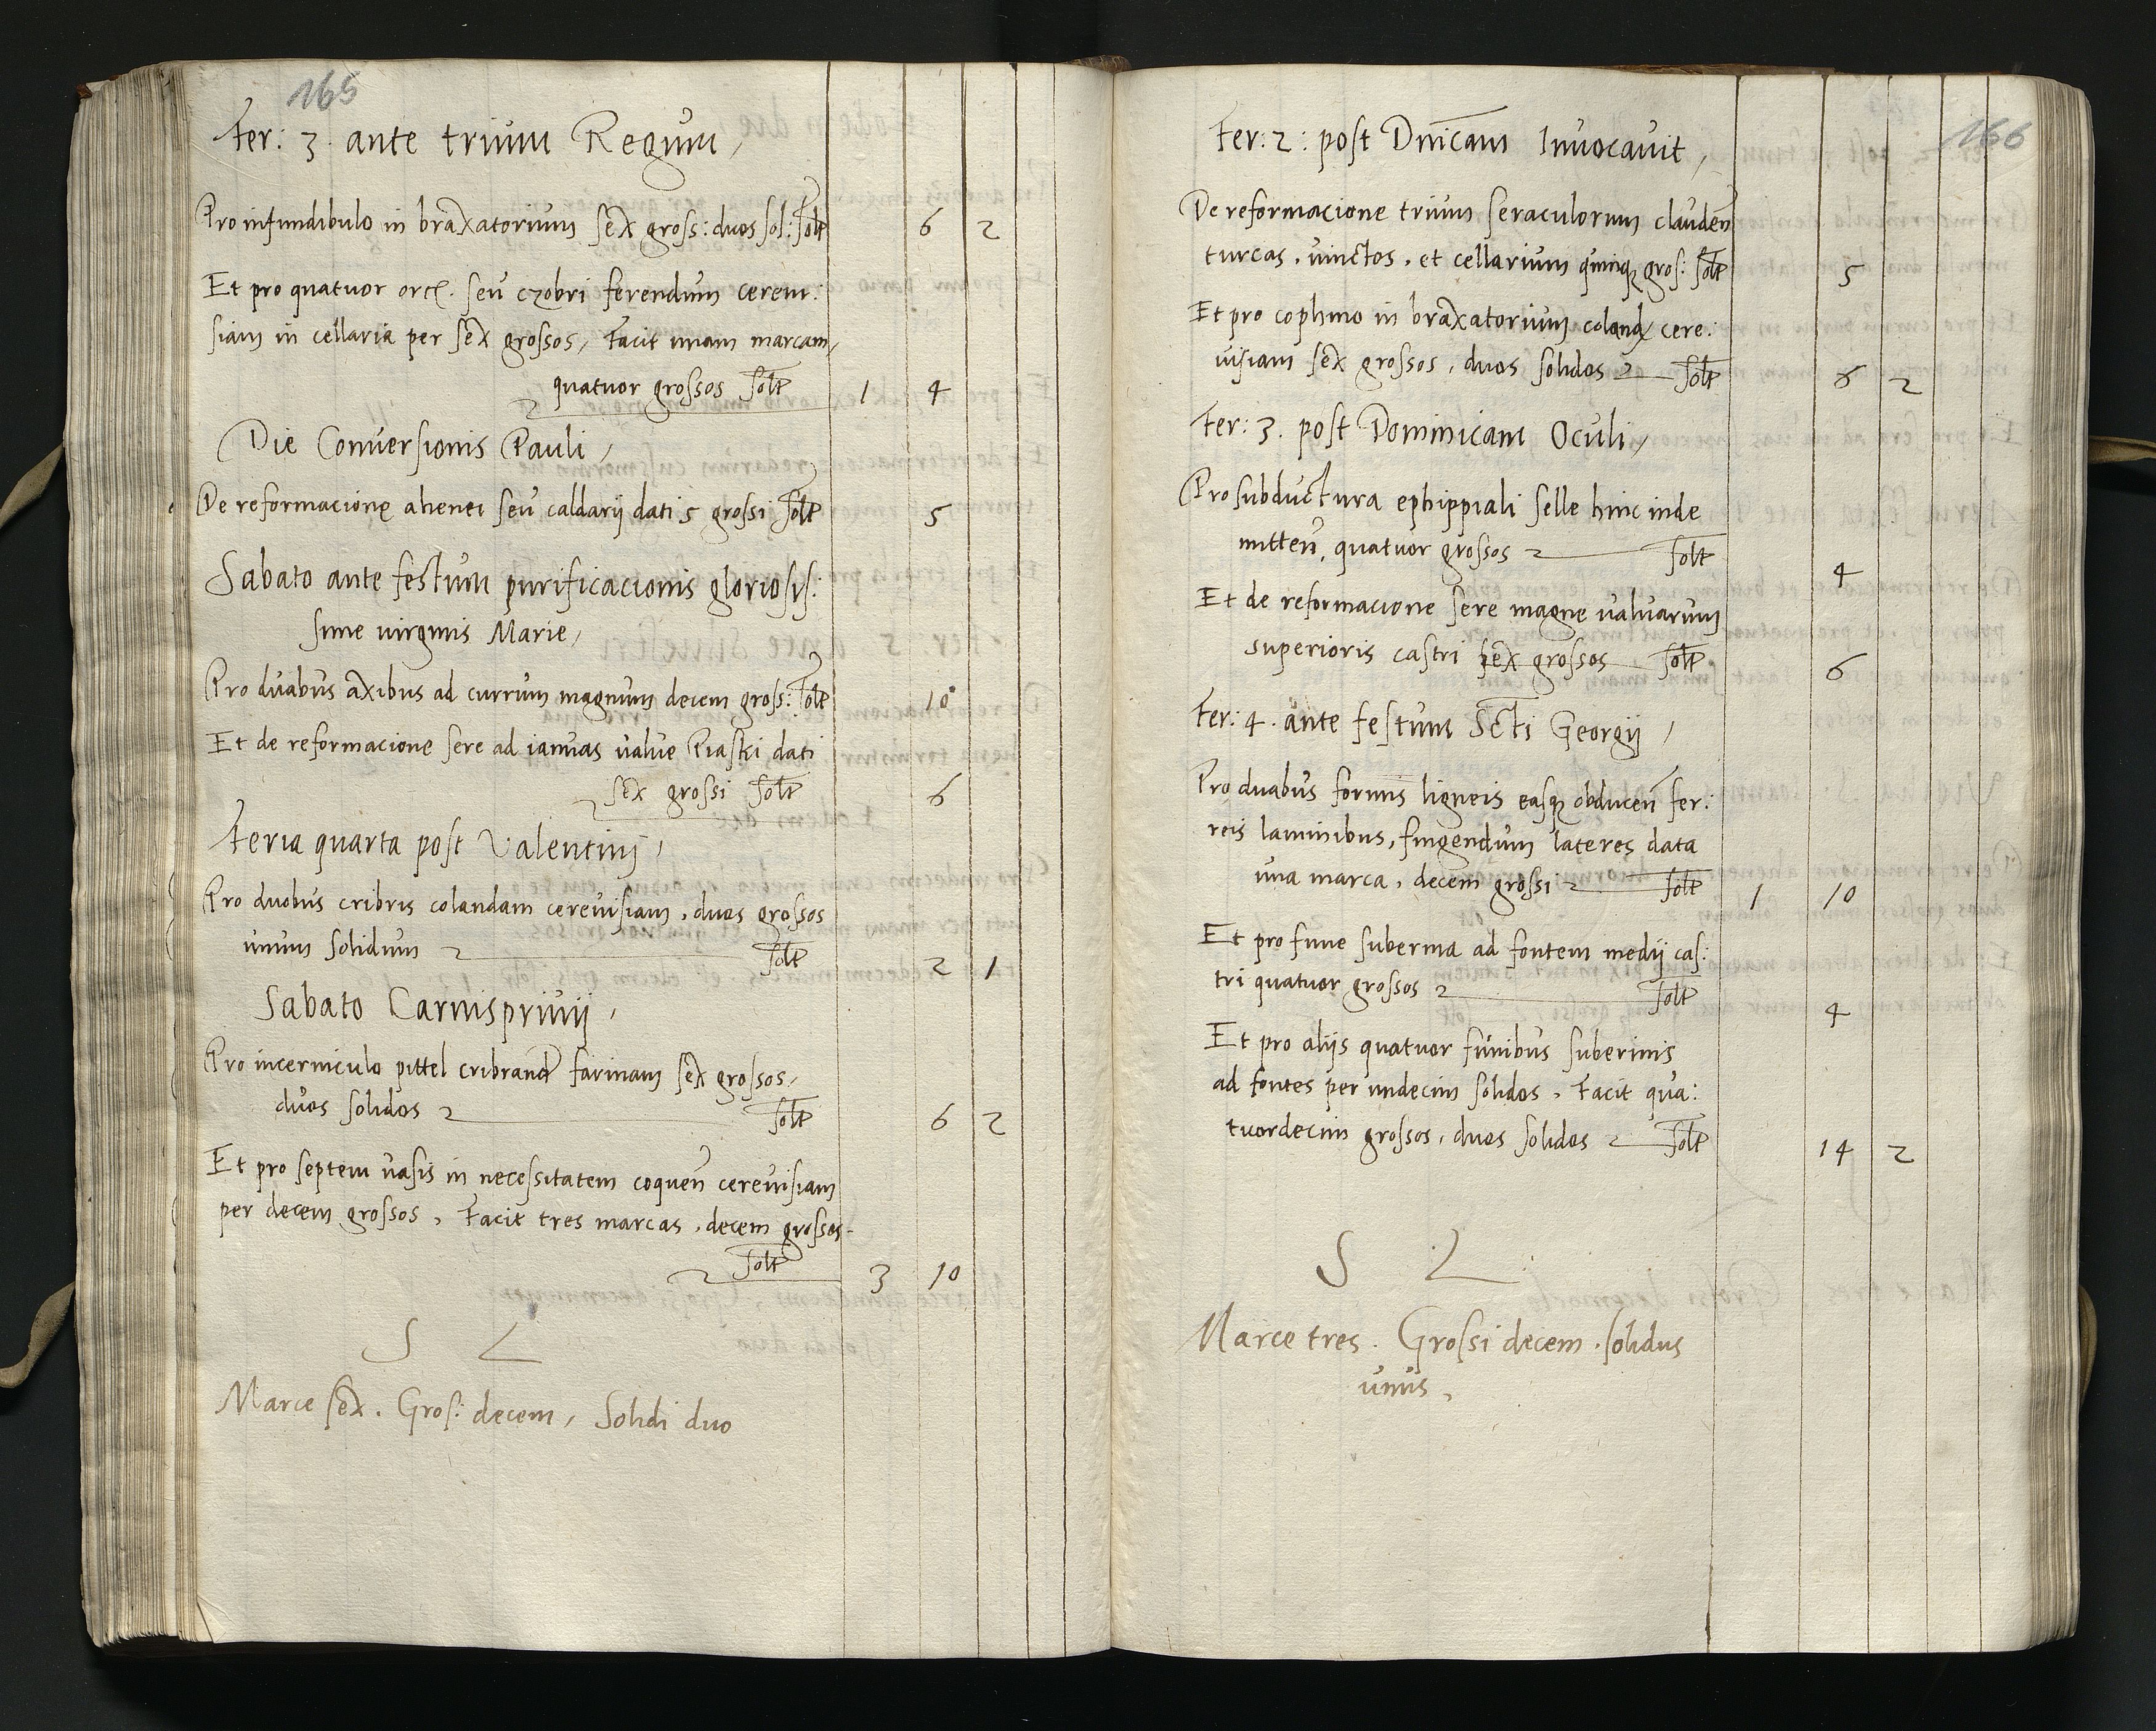 165
Fer: 3. ante trium Regum,
Pro infundibulo in braxatorium sex gross: duos sol: solt 6 2
Et pro quatuor orc. seu czobri ferendum cerevi:
siam in cellaria per sex grossos, Facit unam marcam,
quatuor grossos solt 1 4
Die Conversionis Pauli,
De reformacione ahenei seu caldarij dati 5 grossi solt 5
Sabato ante festum purificacionis gloriosis:
sime virginis Marie,
Pro duabus axibus ad currum magnum decem gross: solt 10
Et de reformacione sere ad ianuas value Piaski dati
sex grossi solt 6
Feria quarta post Valentinj,
Pro duobus cribris colandam cerevisiam, duos grossos
unum solidum solt 2 1
Sabato Carnisprivij,
Pro incerniculo pittel cribrand farinam sex grossos,
duos solidos solt 6 2
Et pro septem vasis in necessitatem coquen cerevisiam
per decem grossos, Facit tres marcas, decem grossos
solt 3 10
S L
Marce sex. Gros: decem, Solidi duo
166
Fer: 2: post Dnicam Invocavit,
De reformacione trium seraculorum clauden
turcas, vinctos, et cellarium quinq gros: solt 5
Et pro cophino in braxatorium coland cere:
visiam sex grossos, duos solidos solt 6 2
Fer: 3. post Dominicam Oculi,
Pro subductura ephippiali selle hinc inde
mitten, quatuor grossos solt 4
Et de reformacione sere magne valuarum
superioris castri sex grossos solt 6
Fer: 4. ante festum Scti Georgij,
Pro duabus formis ligneis easq obducen fer:
reis laminibus, fingendum lateres data
una marca, decem grossi solt 1 10
Et pro fune suberina ad fontem medij cas:
tri quatuor grossos solt 4
Et pro alijs quatuor funibus suberinis
ad fontes per undecim solidos, Facit qua:
tuordecim grossos, duos solidos solt 14 2
S L
Marce tres. Grossi decem. solidus
unus,